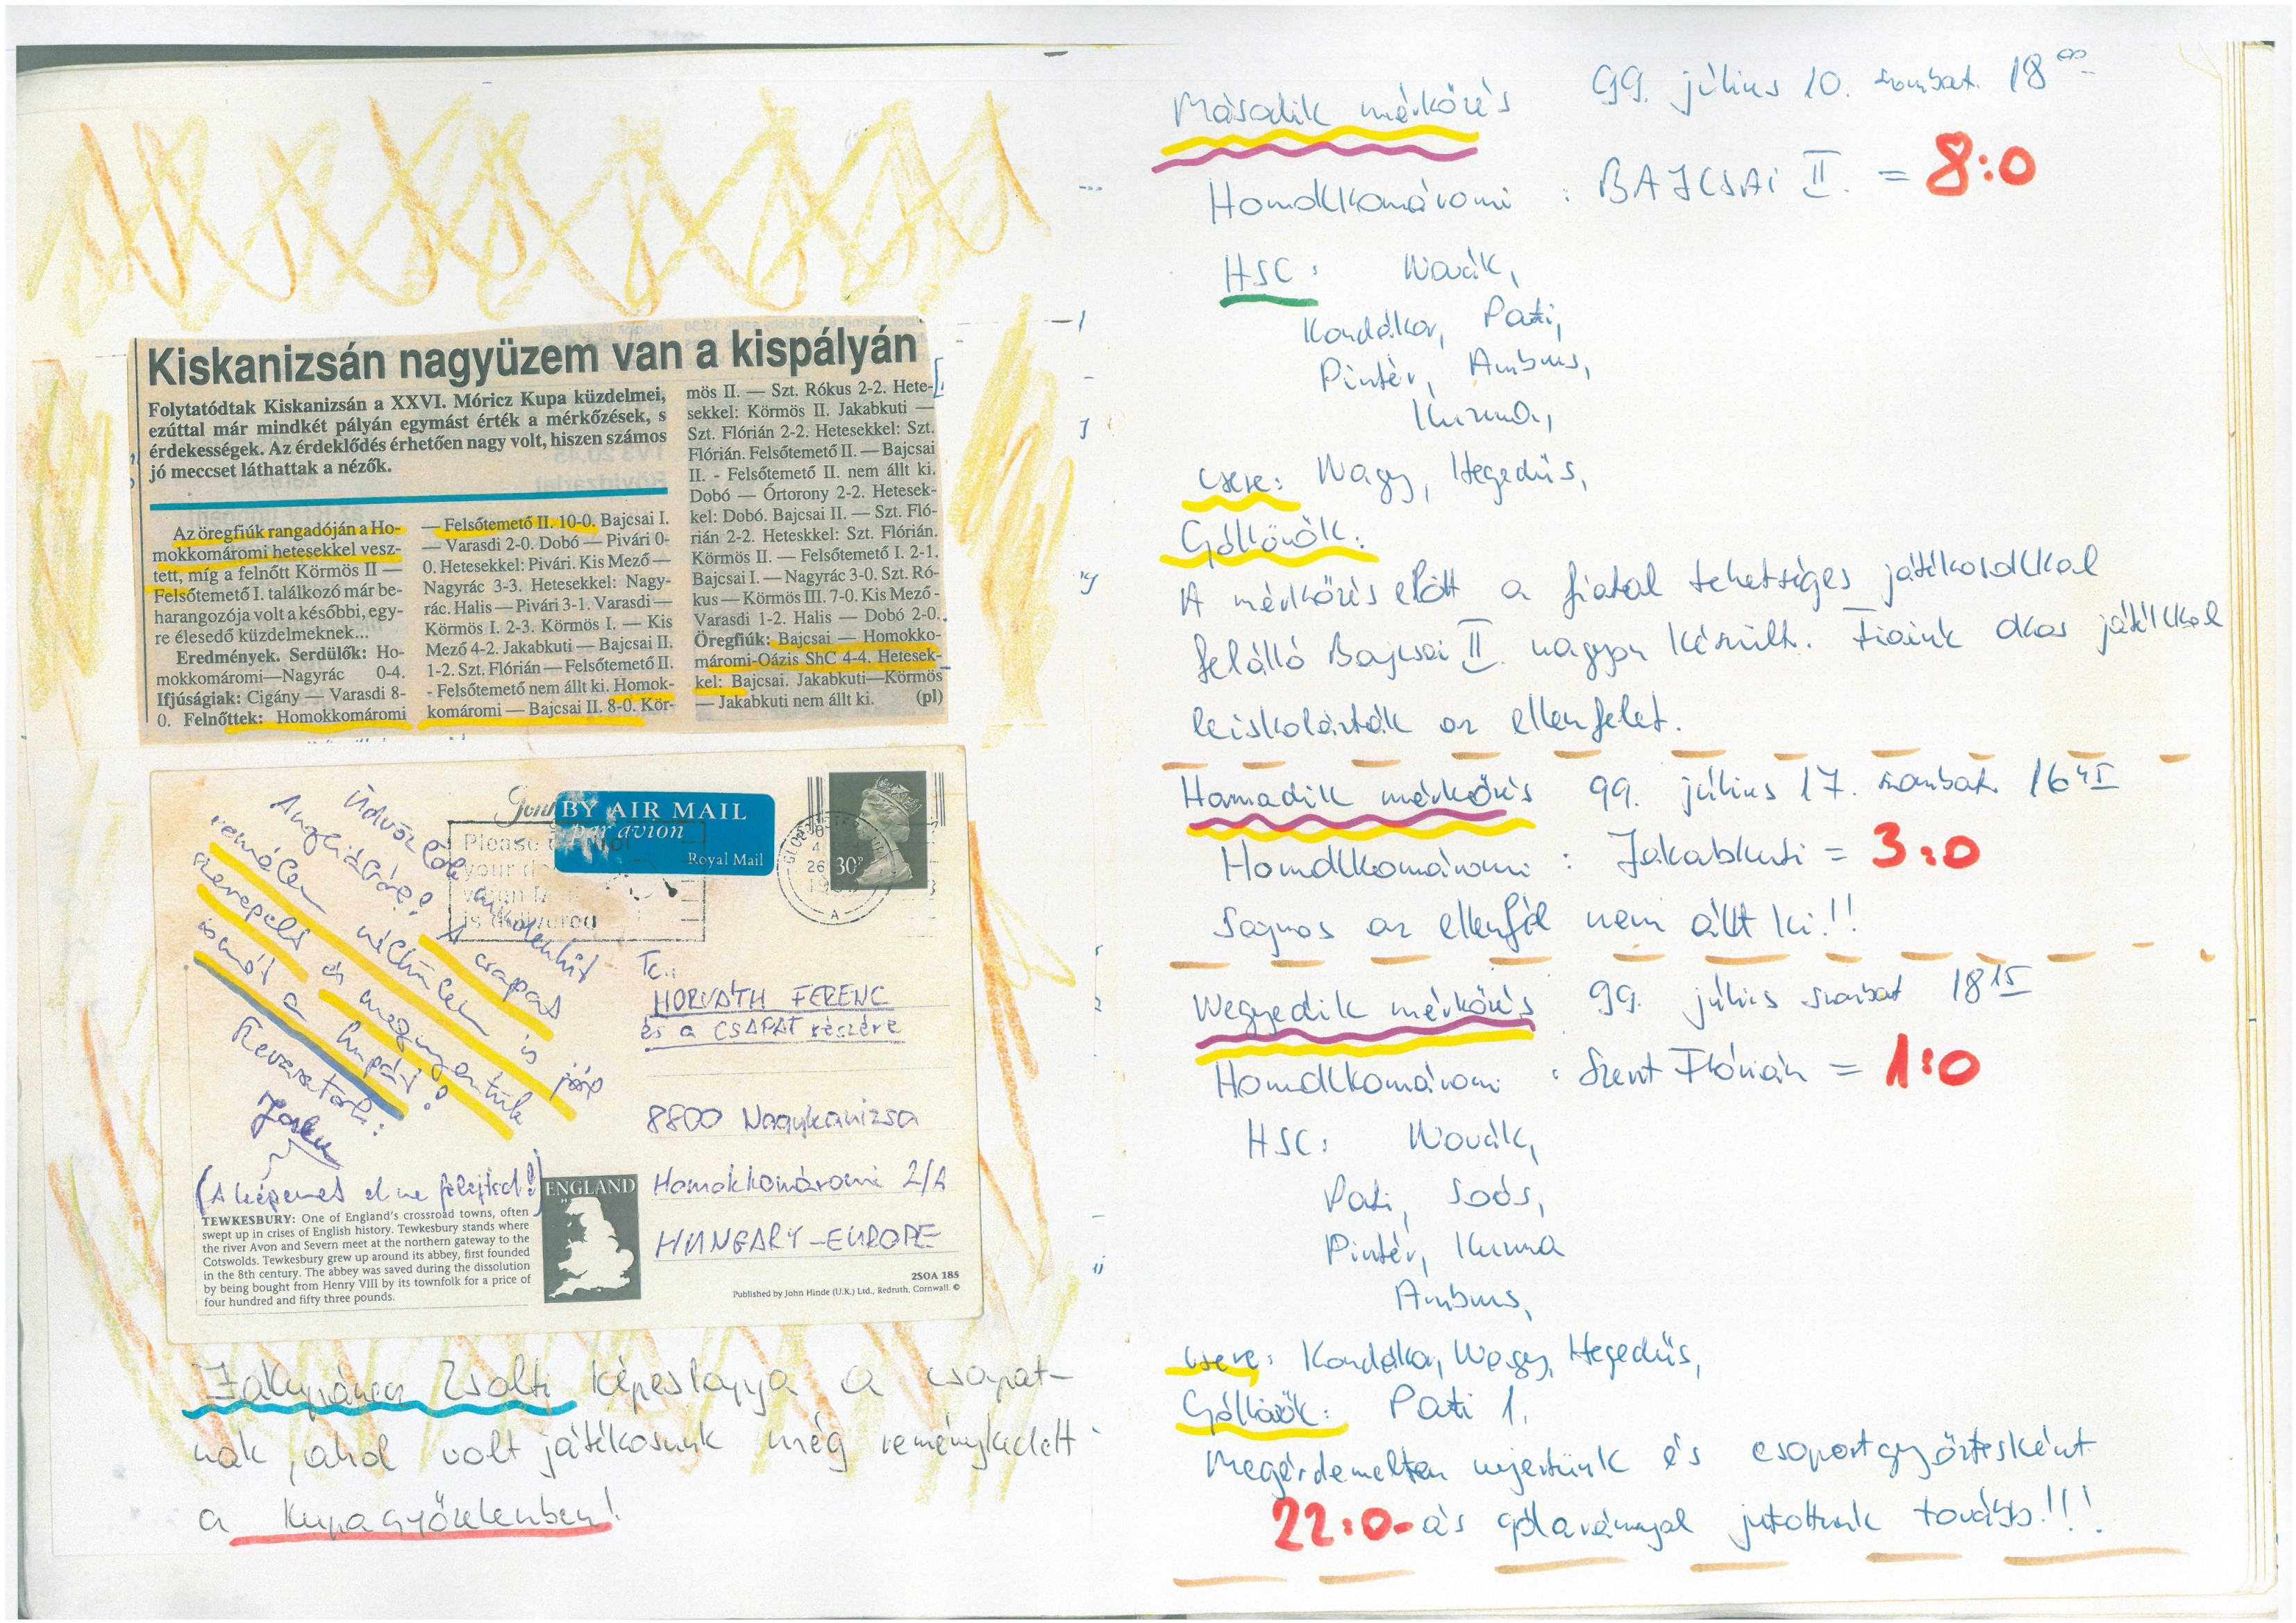 Kiskanizsán nagyüzem van a kispályán
Folytatódtak Kiskanizsán a XXVI. Móricz Kupa küzdelmei,
ezúttal már mindkét pályán egymást érték a mérkőzések, s
érdekességek. Az érdeklődés érhetően nagy volt, hiszen számos
jó meccset láthattak a nézők.
Az öregfiúk rangadóján a Ho-
mokkomáromi hetesekkel vesz-
tett, míg a felnőtt Körmös II —
Felsőtemető I. találkozó már be-
harangozója volt a későbbi, egy-
re élesedő küzdelmeknek...
Eredmények. Serdülők: Ho-
mokkomáromi—Nagyrác 0-4.
Ifjúságiak: Cigány — Varasdi 8-
0. Felnőttek: Homokkomáromi
— Felsőtemető II. 10-0. Bajcsai I.
— Varasdi 2-0. Dobó — Pivári 0-
0. Hetesekkel: Pivári. Kis Mező —
Nagyrác 3-3. Hetesekkel: Nagy-
rác. Halis — Pivári 3-1. Varasdi —
Körmös I. 2-3. Körmös I. — Kis
Mező 4-2. Jakabkuti — Bajcsai II.
1-2. Szt. Flórián — Felsőtemető II.
- Felsőtemető nem állt ki. Homok-
komáromi — Bajcsai II. 8-0. Kör-
mös II. — Szt. Rókus 2-2. Hete-
sekkel: Körmös II. Jakabkuti —
Szt. Flórián 2-2. Hetesekkel: Szt.
Flórián. Felsőtemető II. — Bajcsai
II. - Felsőtemető II. nem állt ki.
Dobó — Őrtorony 2-2. Hetesek-
kel: Dobó. Bajcsai II. — Szt. Fló-
rián 2-2. Heteskkel: Szt. Flórián.
Körmös II. — Felsőtemető I. 2-1.
Bajcsai I. — Nagyrác 3-0. Szt. Ró-
kus — Körmös III. 7-0. Kis Mező -
Varasdi 1-2. Halis — Dobó 2-0.
Öregfiúk: Bajcsai — Homokko-
máromi-Oázis ShC 4-4. Hetesek-
kel: Bajcsai. Jakabkuti—Körmös
— Jakabkuti nem állt ki. (pl)
BY AIR MAIL
par avion
Royal Mail
30P
Please
your
is delivered
Üdvözlök mindenkit
Angliából! A csapat
remélem nélkülem is jól
szerepelt és megnyertük
ismét a kupát!
To.:
HORVÁTH FERENC
és a CSAPAT részére
8800 Nagykanizsa
Homokkomáromi 2/A
HUNGARY-EUROPE
(A képemet el ne felejtsd!)
ENGLAND
TEWKESBURY: One of England's crossroad towns, often
swept up in crises of English history. Tewkesbury stands where
the river Avon and Severn meet at the northern gateway to the
Cotswolds. Tewkesbury grew up around its abbey, first founded
in the 8th century. The abbey was saved during the dissolution
by being bought from Henry VIII by its townfolk for a price of
four hundred and fifty three pounds.
2SOA 185
Published by John Hinde (U.K.) Ltd., Redruth, Cornwall. ©
Zsolt képeslapja a csapat-
nak, ahol volt játékosunk még reménykedett
a kupagyőzelemben!
Második mérkőzés 99. július 10. szombat 18 00
Homokkomáromi : BAJCSAI II. = 8:0
HSC: Novák,
Kondákor, Pati,
Pintér, Ambrus,
Kuzma,
Csere: Nagy, Hegedűs,
Góllövők:
A mérkőzés előtt a fiatal tehetséges játékosokkal
felálló Bajcsai II. nagyon készült. Fiaink okos játékkal
leiskolázták az ellenfelet.
Harmadik mérkőzés 99. július 17. szombat 16 45
Homokkomáromi : Jakabkuti = 3:0
Sajnos az ellenfél nem állt ki!!
Negyedik mérkőzés 99. július szombat 18 15
Homokkomáromi : Szent Flórián = 1:0
HSC: Novák,
Pati, Soós,
Pintér, Kuzma
Ambrus,
csere: Kondákor, Nagy, Hegedűs,
Góllövők: Pati 1.
Megérdemelten nyertünk és csoportgyőztesként
22:0-ás gólaránnyal jutottunk tovább!!!